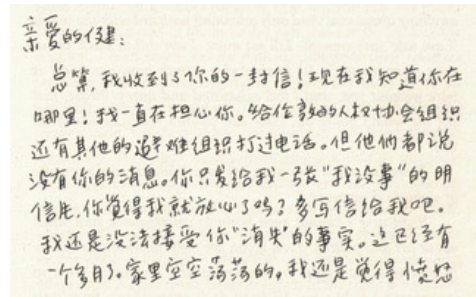 亲爱的健:
总算,我收到了你的一封信!现在我知道你在
哪里!我一直在担心你。给伦敦的人权协会组织
还有其他的避难组织打过电话。但他们都说
没有你的消息。你只发给我一张“我没事”的明
信片,你觉得我就放心了吗?多写信给我吧。
我还是没法接受你“消失”的事实。这已经有
一个多月了。家里空空荡荡的,我还是觉得愤怒